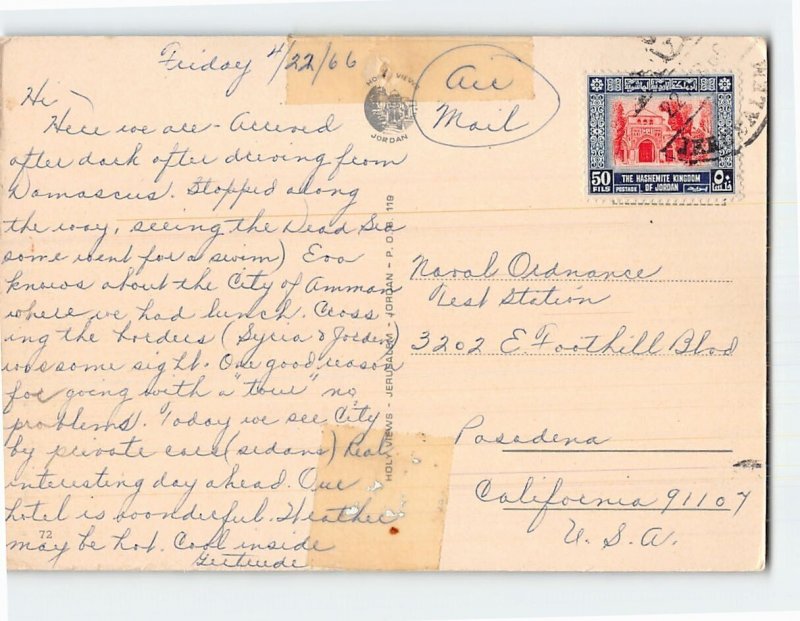 Friday 4/22/66
Hi -
Here we are - Arrived
after dark after driving from
Damascus. Stopped along
the way, seeing the Dead Sea
some went for a swim) Eva
knows about the City of Amman
where we had lunch. Cross
ing the borders (Syria & Jordan)
was some sight. One good reason
for going with a "tour" no
problems. Today we see City
by private cars (sedans) Real
interesting day ahead. Our
hotel is woonderful. Weather
may be hot. Cool inside
Gertrude
72
HOLY VIEWS
JORDAN
HOLY VIEWS - JERUSALEM - JORDAN - P.O.B. 119
Air
Mail
50
FILS
THE HASHEMITE KINGDOM
POSTAGE OF JORDAN
٥٠
Naval Ordnance
Test Station
3202 E. Foothill Blvd
Pasadena
California 91107
U.S.A.